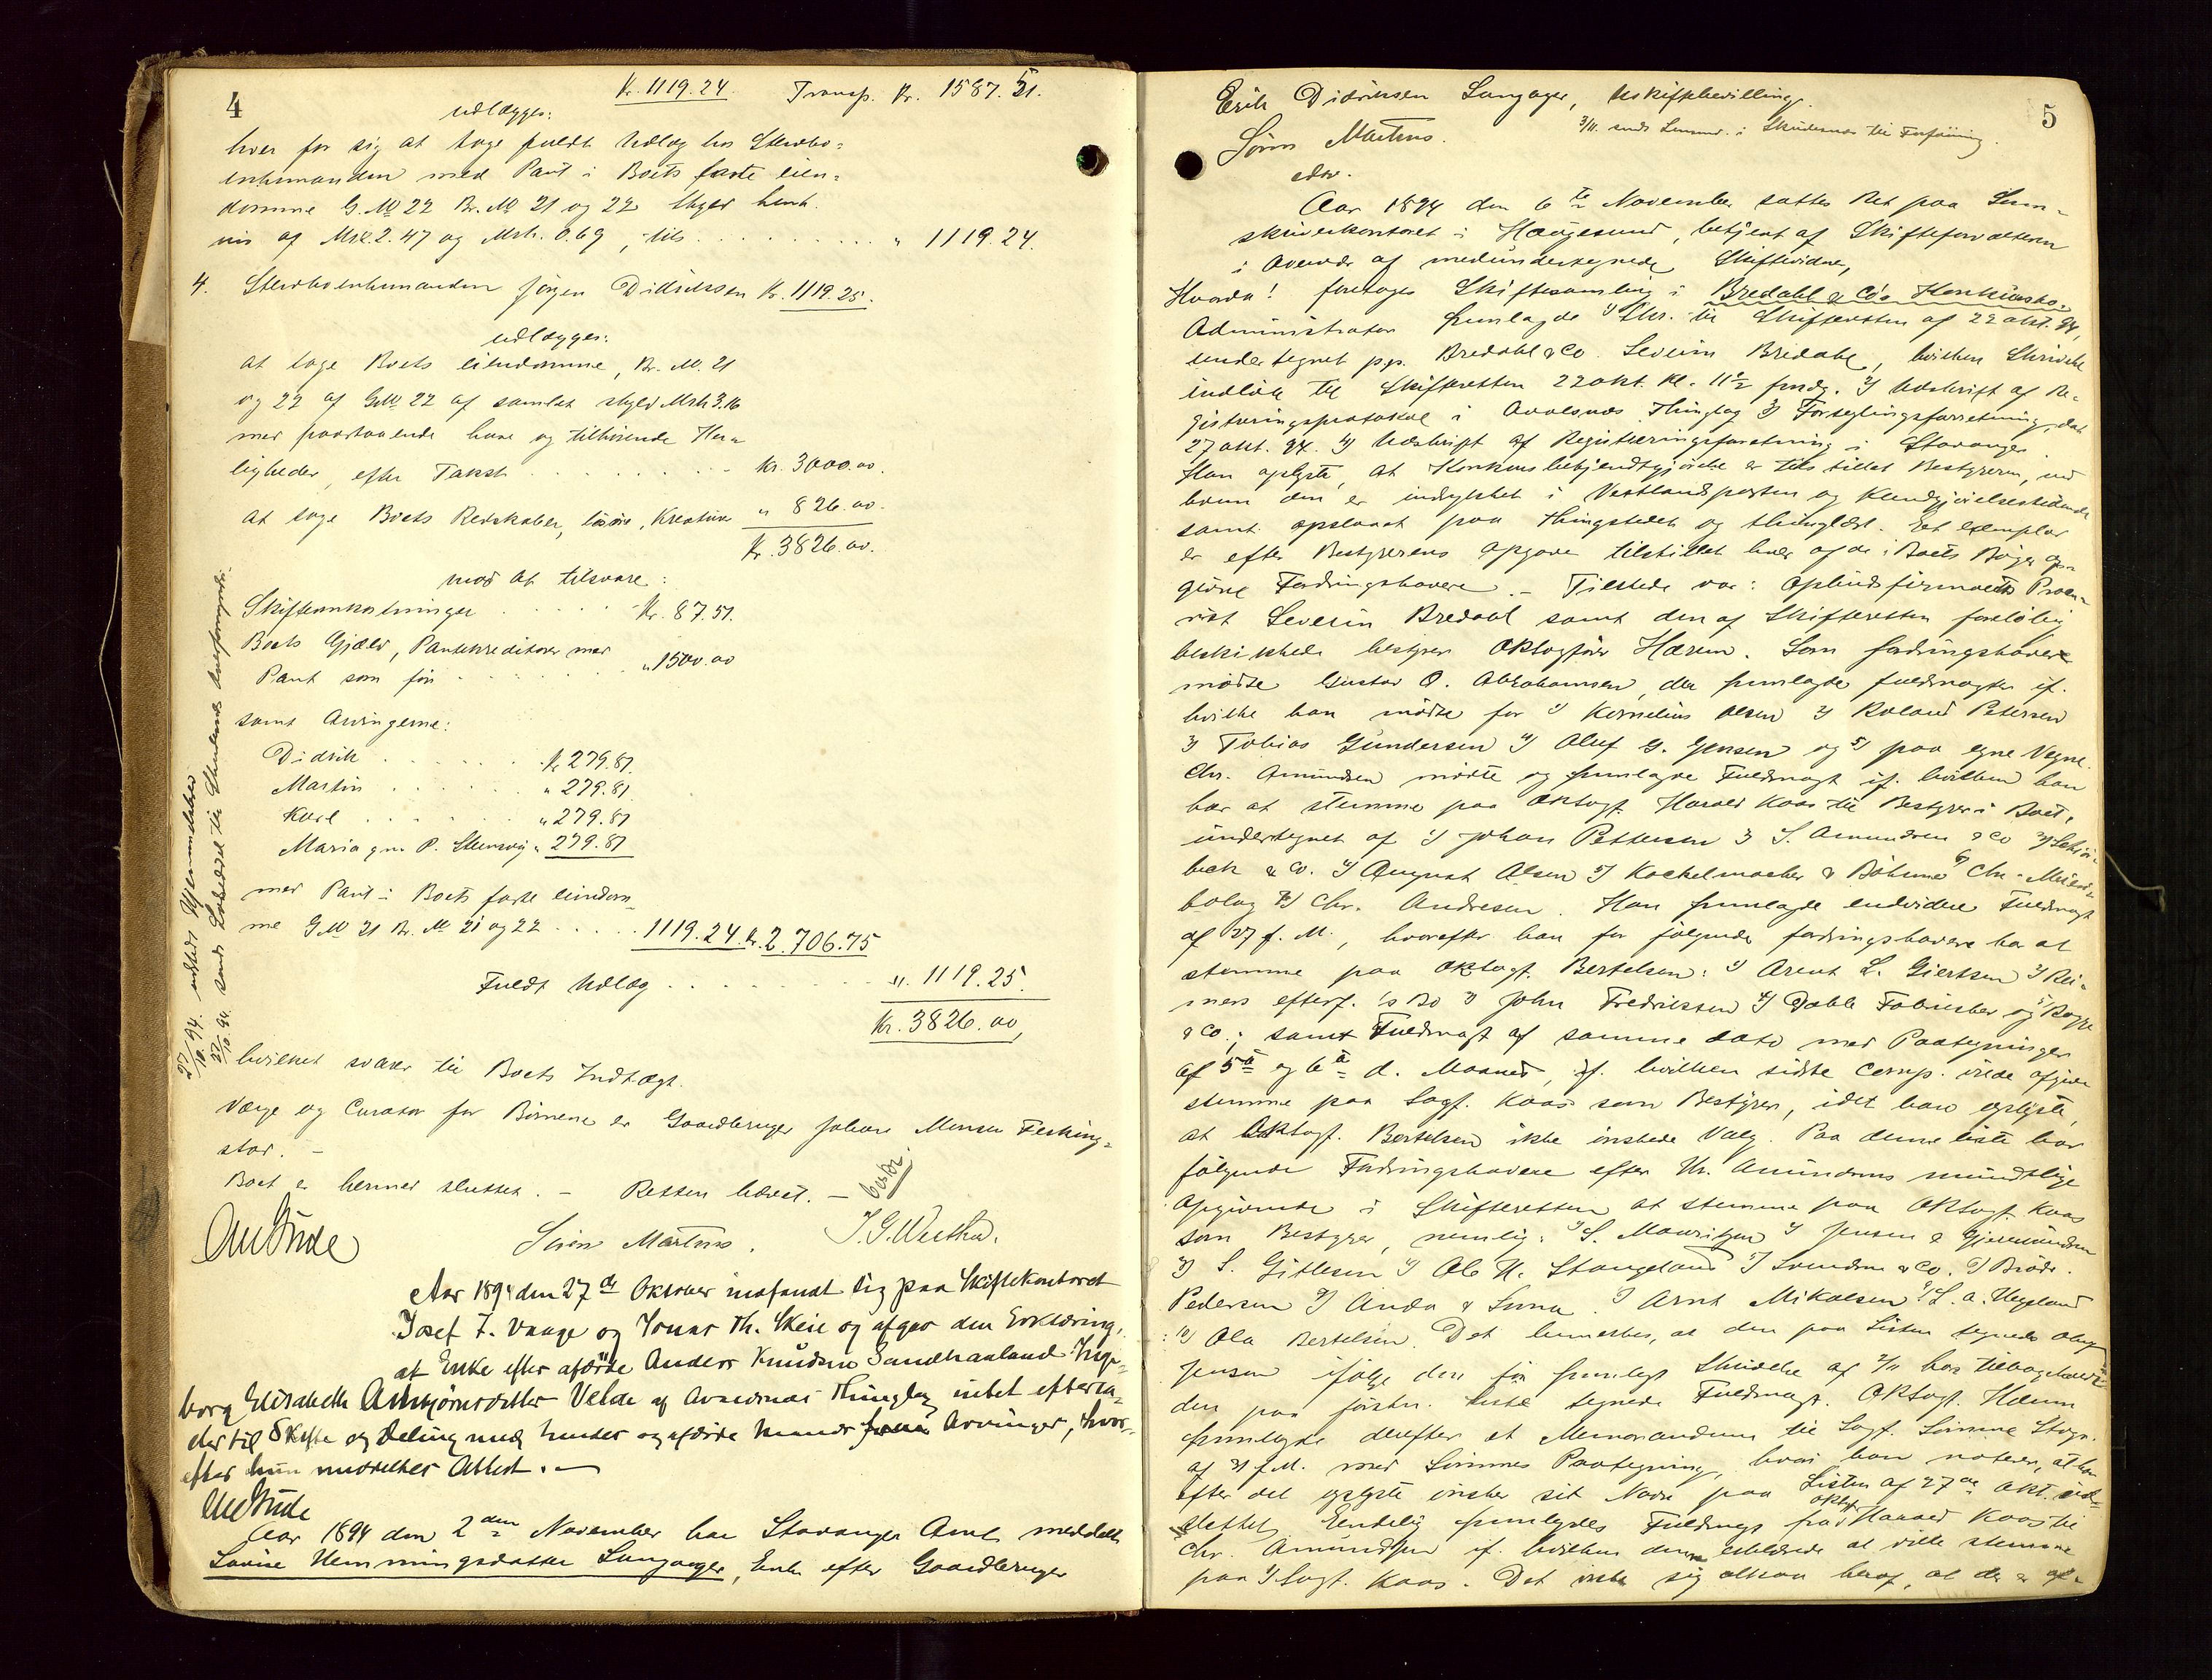 4
Kr. 1119.24. Transp. Kr. 1587.51.
udlægges:
hver for sig at tage fuldt Udlæg hos Stervbo-
enkemanden med Pant i Boets faste eien-
domme G. No 22 Br. No 21 og 22 Skyld henh.
vis af Mrk. 2.47 og Mrk. 0.69, tils. . . . " 1119.24.
4. Stervboenkemanden Jørgen Didriksen Kr. 1119.25.
udlægges:
at tage Boets eiendomme, Br. No. 21
og 22 af G No 22 af samlet skyld Mrk 3.16
med paastaaende huse og tilhørende Her-
ligheder, efter Takst . . . Kr. 3000.00.
at tage Boets Redskaber, løsøre, Kreature " 826.00.
Kr. 3826.00.
mod at tilsvare:
Skifteomkostninger . . . Kr. 87.51.
Boets Gjæld, Pantekreditorer med
Pant som før . . . " 1500.00
samt Arvingerne:
Didrik . . . Kr 279.81.
Martin . . . " 279.81
Karl . . . " 279.81
Maria gm P. Stensvig " 279.81
med Pant i Boets faste eiendom-
me G No 21 Br. No 21 og 22 . . . 1119.24. Kr. 2.706.75
Fuldt Udlæg . . . " 1119.25.
Kr. 3826.00,
hvilket svarer til Boets Indtægt.
Værge og Curator for Børnene er Gaardbruger Johan Monsen Ferking-
stad. –
Boet er hermed sluttet. – Retten hævet. –
27/10 94. udstedt Hjemmelsbrev
27/10 94. sendt
Søren Martens. J. G. Wester.
Aar 1894 den 27de Oktober indfandt sig paa Skiftekontoret
Josef T. Vaage og Jonas Th. Skeie og afgav den Erklæring,
at Enke efter afdøde Anders Knudsen Sandhaaland Inge-
borg Elisabeth Asbjørnsdatter Velde af Avaldsnæs Thinglag intet efterla-
der til Skifte og Deling med hendes og afdøde Mands Arvinger, hvor-
efter hun meddeltes Attest. –
Aar 1894 den 2den November har Stavanger Amt meddelt
Lovise Hemmingsdatter Langaager, Enke efter Gaardbruger
5
Erik Didriksen Langager, Uskiftebevilling.
3/11. sendt Lensmd. i Skudenæs til Forføining.
Søren Martens.
Aar 1894 den 6te November sattes Ret paa Soren-
skriverkontoret i Haugesund, betjent af Skifteforvalteren
i Overvær af medundertegnede Skiftevidne,
Hvorda! foretoges Skiftesamling i Bredahl & Co's Konkursbo.
Administrator fremlagde 1) Skr. til Skifteretten af 22 okt. 94,
undertegnet pp. Bredahl & Co. Severin Bredahl, hvilken Skrivelse
indløb til Skifteretten 22 okt. Kl. 11½ fmdg. 2) Udskrift af Re-
gistreringsprotokol i Avalsnæs Thinglag 3) Forseglingsforretning, dat
27 okt. 94. 4) Udskrift af Registreringsforretning i Stavanger.
Han oplyste, at Konkursbekjendtgjørelse er tilstillet Bestyreren, ved
hvem den er indrykket i Vestlandsposten og Kundgjørelsestidende
samt opslaaet paa Thingstedet og thinglæst. Et exemplar
er efter Bestyrerens Opgave tilstillet hver af de i Boets Bøger op-
givne Fordringshavere. – Tilstede var: Opbudsfirmaets Proku-
rist Severin Bredahl samt den af Skifteretten foreløbig
beskikkede bestyrer ORsagfører Hærem. Som fordringshavere
mødte Gustav O. Abrahamsen, der fremlagde fuldmagter if.
hvilke han mødte for 1) Kornelius Olsen 2) Roland Petersen
3) Tobias Gundersen 4) Oluf G. Jensen og 5) paa egne Vegne.
Chr. Amundsen mødte og fremlagde Fuldmagt if. hvilken han
har at stemme paa ORsagf. Harald Kaas til Bestyrer i Boet,
undertegnet af 1) Johan Pettersen 2) S. Amundsen & Co 3)
beck & Co. 4) August Olsen 5) Kackelmacher & Böhme 6) Chr.
7) Chr. Andresen. Han fremlagde endvidere Fuldmagt
af 27 f. M., hvorefter han for følgende fordringshavere har at
stemme paa ORsagf. Bertelsen: 1) Arent L. Giertsen 2) Rei-
mers efterf.'s Bo 3) John Fredriksen 4) Dahle Fabrikker og 5)
& Co; samt Fuldmagt af samme dato med Paategninger
af 5te og 6te d. Maaned, if. hvilken sidste Comp. vilde afgive
stemme paa Sagf. Kaas som Bestyrer, idet han oplyste,
at ORsagf. Bertelsen ikke ønskede Valg. Paa denne liste har
følgende Fordringshavere efter Hr. Amundsens mundtlige
Opgivende i Skifteretten at stemme paa ORsagf. Kaas
som Bestyrer, nemlig: 1) S. Mauritzen 2) Jensen & Gjermundsen
3) S. Gitlesen 4) Ole H. Stangeland 5) Svendsen & Co. 6) Brødr.
Pedersen 7) Anda & Suna. 8) Arnt Mikalsen 9) L. A. Høyland
10) Ola Bertelsen. Det bemerkes, at den paa Listen tegnede
Jensen ifølge den før fremlagt Skrivelse af 2/11 har tilbagekaldt
den paa førstn. liste tegnede Fuldmagt. ORsagf. Hærem
fremlagde derefter et Memorandum til Sagf.
af 31 f. M. med Paategning, hvori han noterer, at han
efter det oplyste ønsker sit Navn paa Listen af 27de okt. ud-
slettet. Endelig fremlagdes Fuldmagt fra ORsagf Harald Kaas til
Chr. Amundsen if. hvilken denne erklærede at ville stemme
paa Sagf. Kaas. Det viste sig altsaa heraf, at der er af-